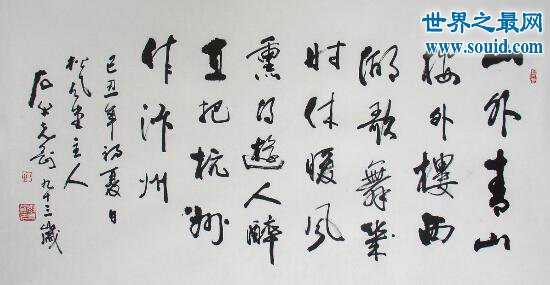 世界之最网
www.souid.com
山外青山
樓外樓西
湖歌舞幾
時休暖風
熏得遊人醉
直把杭州
作汴州
己丑年初夏日
松風堂主人
九十三歲